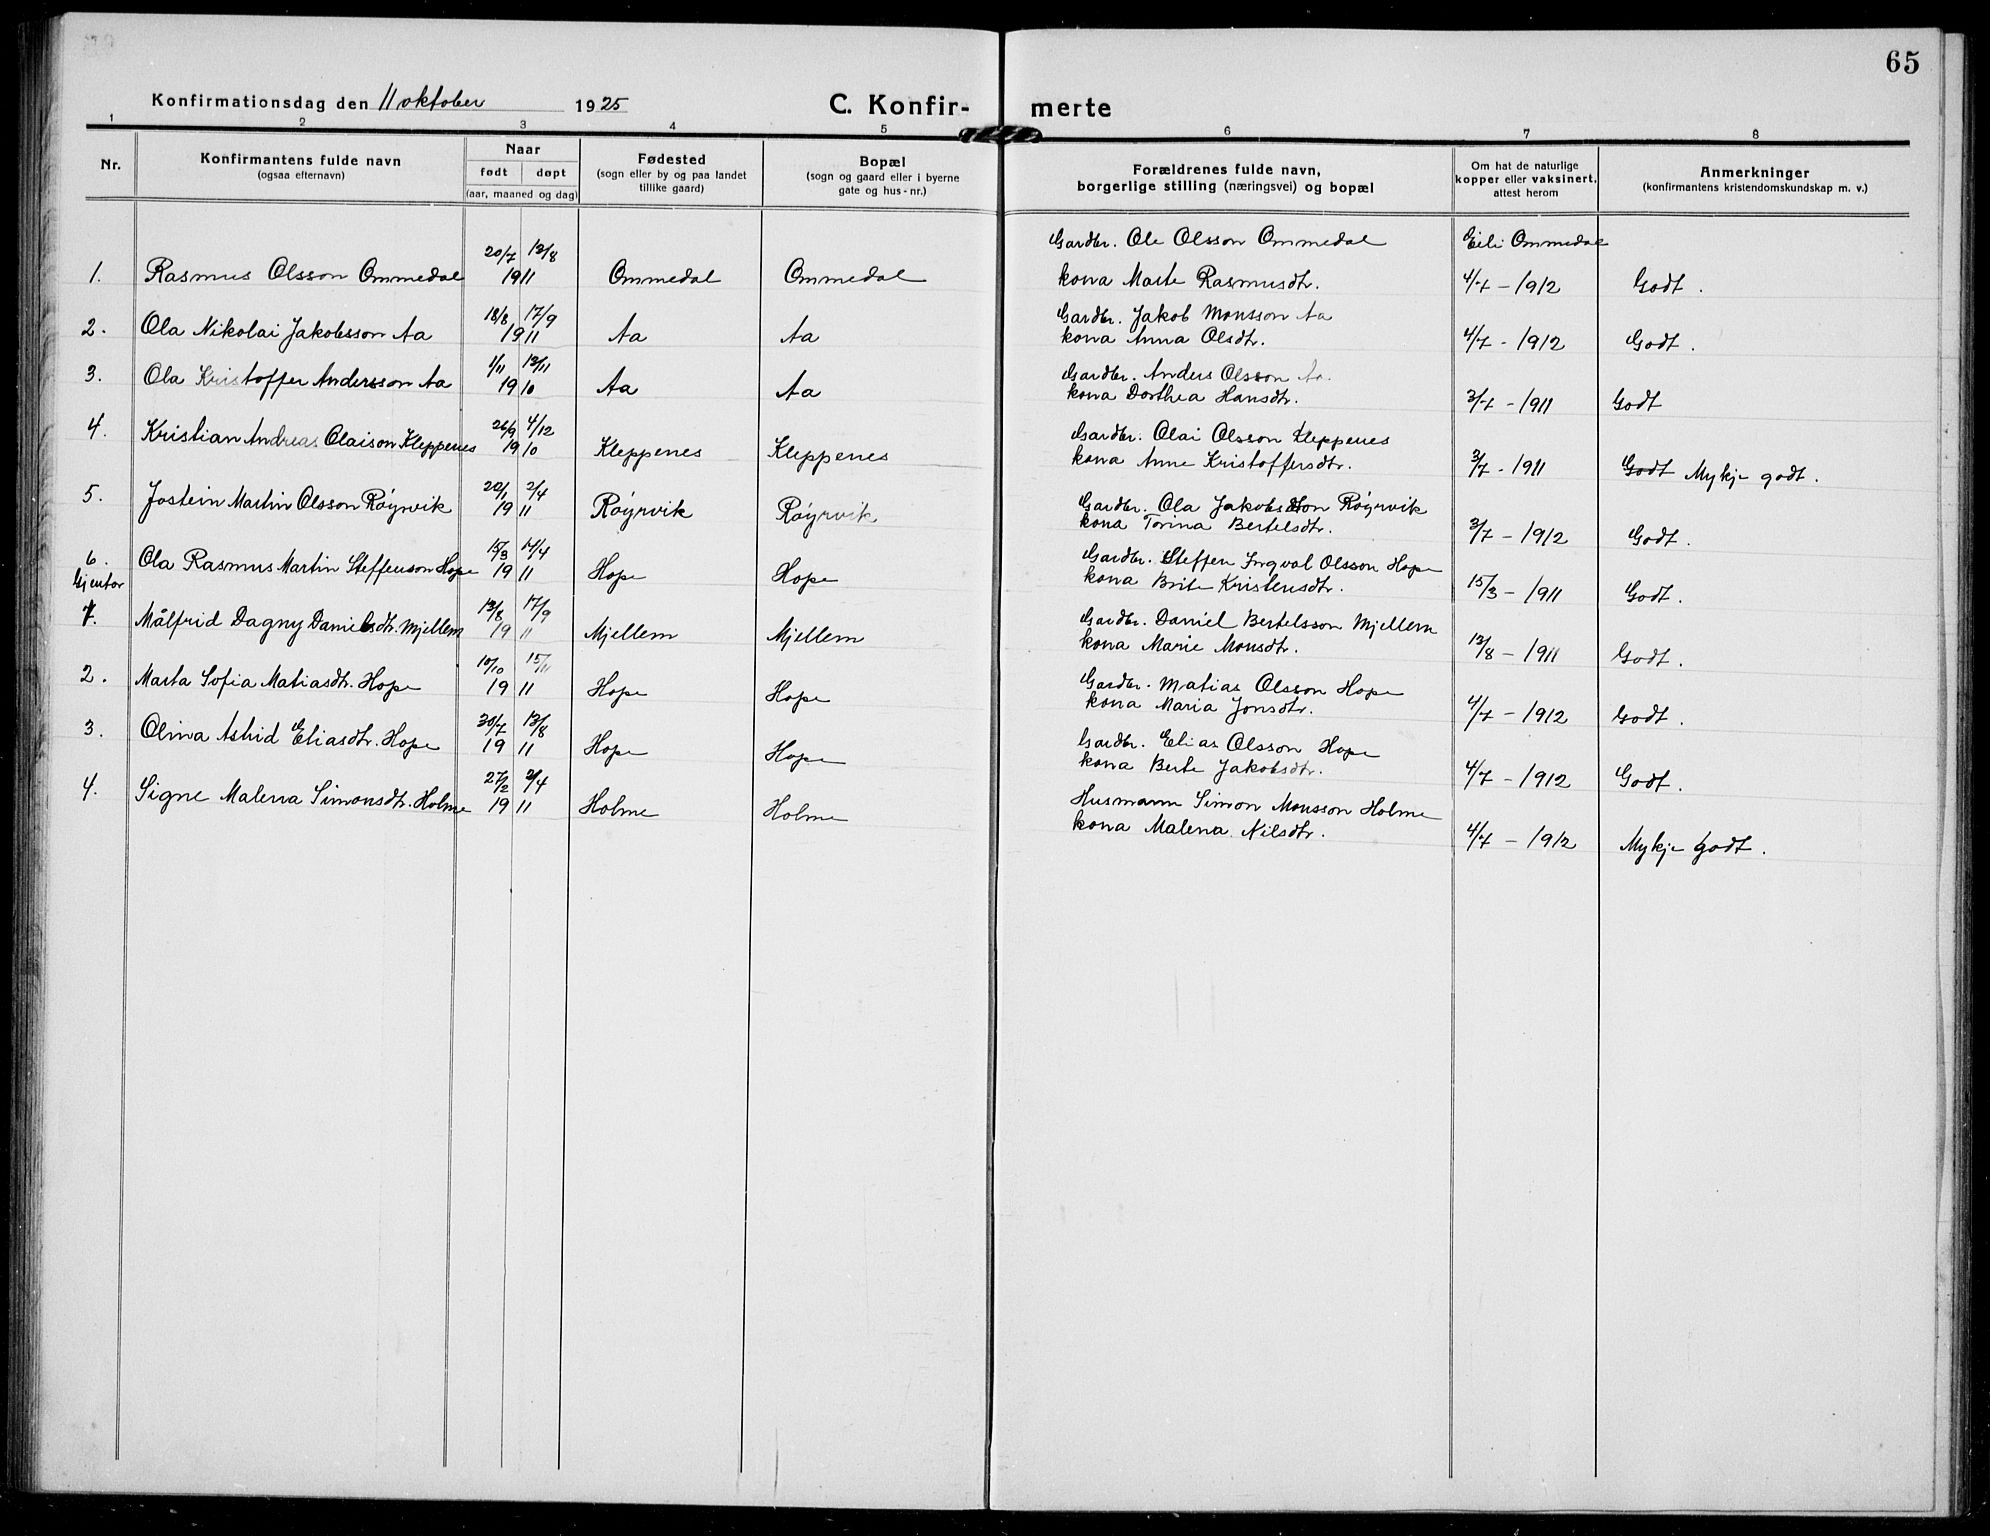 65
Konfirmationsdag den 11 oktober 1925
C. Konfir- merte
1 2 3 4 5 6 7 8
Nr.
Konfirmantens fulde navn
(ogsaa efternavn)
Naar
født døpt
(aar, maaned og dag)
Fødested
(sogn eller by og paa landet
tillike gaard)
Bopæl
(sogn og gaard eller i byerne
gate og hus-nr.)
Forældrenes fulde navn,
borgerlige stilling (næringsvei) og bopæl
Om hat de naturlige
kopper eller vaksinert,
attest herom
Anmerkninger
(konfirmantens kristendomskundskap m. v.)
20/7 13/8 Gardbr. Ole Olsson Ommedal Eili Ommedal
1. Rasmus Olsson Ommedal 1911 Ommedal Ommedal kona Marte Rasmusdtr. 4/7 - 1912 Godt.
18/8 17/9 Gardbr. Jakob Monsson Aa
2. Ola Nikolai Jakobsson Aa 1911 Aa Aa kona Anna Olsdtr. 4/7 - 1912 Godt.
1/11 13/11 Gardbr. Anders Olsson Aa.
3. Ola Kristoffer Andersson Aa 1910 Aa Aa kona Dorthea Hansdtr. 3/7 - 1911 Godt
26/9 4/12 Gardbr. Olai Olsson Kleppenes
4. Kristian Andreas Olaison Kleppenes 1910 Kleppenes Kleppenes kona Anne Kristoffersdtr. 3/7 - 1911 Godt Mykje godt.
22/1 2/4 Gardbr. Ola Jakobsson Röyrvik
5. Jostein Martin Olsson Röyrvik 1911 Röyrvik Röyrvik kona Torina Bertelsdtr. 3/7 - 1912 Godt.
15/3 17/4 Gardbr. Steffen Ingval Olsson Hope
6. Ola Rasmus Martin Steffenson Hope 1911 Hope Hope kona Brite Kristensdtr. 15/3 - 1911 Godt.
Gjentor
13/8 17/9 Gardbr. Daniel Bertelsson Mjellem
1. Målfrid Dagny Danielsdtr. Mjellem 1911 Mjellem Mjellem kona Marie Monsdtr. 13/8 - 1911 Godt.
10/10 15/11 Gardbr. Matias Olsson Hope
2. Marta Sofia Matiasdtr. Hope 1911 Hope Hope kona Maria Jonsdtr. 4/7 - 1912 Godt.
30/7 13/8 Gardbr. Elias Olsson Hope
3. Olina Astrid Eliasdtr. Hope 1911 Hope Hope kona Berte Jakobsdtr. 4/7 - 1912 Godt.
27/2 2/4 Husmann Simon Monsson Holme
4. Signe Malena Simonsdtr. Holme 1911 Holme Holme kona Malena Nilsdtr. 4/7 - 1912 Mykje godt.